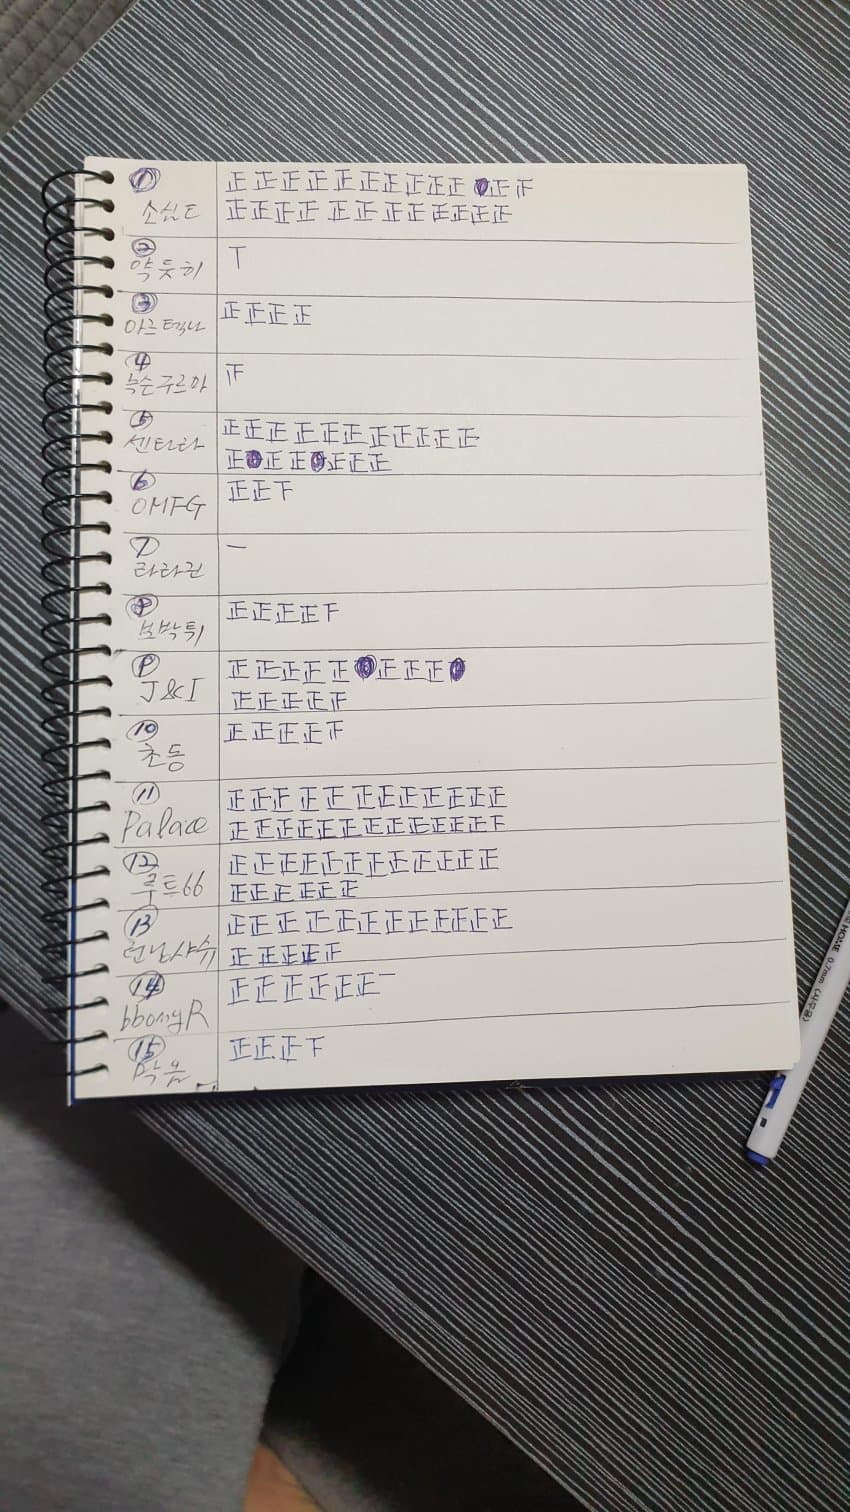 ① 正正正正正正正正正正 正下
소심E 正正正正正正正正正正正正
② 丅
약듯히
③ 正正正正
아르테리나
④ 下
녹슨구르마
⑤ 正正正正正正正正正正
센타라 正 正正 正正正
⑥ 正正下
OMFG
7 一
라라권
⑧ 正正正正下
보박튀
⑨ 正正正正正 正正正
J&I 正正正正下
⑩ 正正正正下
초등
⑪ 正正正正正正正正正正正
Palace 正正正正正正正正正正正下
⑫ 正正正正正正正正正正正
루트66 正正正正正正
⑬ 正正正正正正正正正正正
런닝샤슈 正正正正下
⑭ 正正正正正正一
bbongR
⑮ 正正正下
HOME 0.7mm